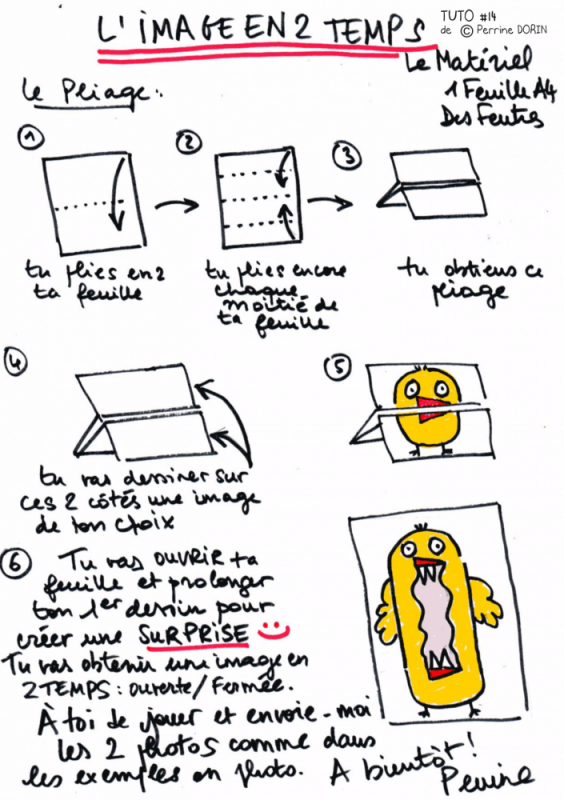 L'IMAGE EN 2 TEMPS
TUTO #14
de © Perrine DORIN
Le Matériel
1 Feuille A4
Des Feutres
Le Pliage :
1
tu plies en 2
ta feuille
2
tu plies encore
chaque
moitié de
ta feuille
3
tu obtiens ce
pliage
4
tu vas dessiner sur
ces 2 côtés une image
de ton choix
5
6
Tu vas OUVRIR ta
feuille et prolonger
ton 1er dessin pour
créer une SURPRISE
Tu vas obtenir une image en
2 TEMPS : ouverte / Fermée.
À toi de jouer et envoie-moi
les 2 photos comme dans
les exemples en photo.
A bientôt !
Perrine